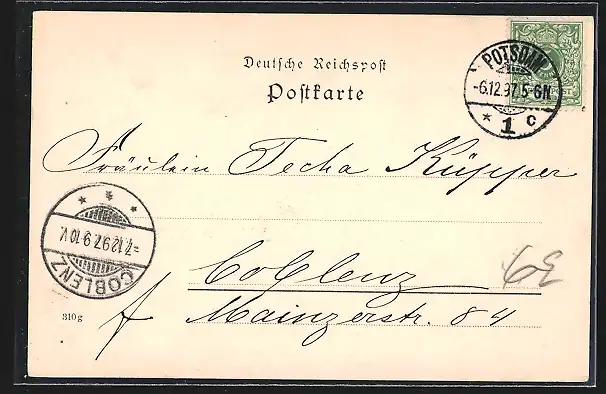 Deutsche Reichspost
Postkarte
POTSDAM
-6.12.97.5-6N.
* 1 c
Fräulein Techa Küpper
COBLENZ
-7.12.97.9-10V.
Coblenz
6E
310g
Mainzerstr. 84